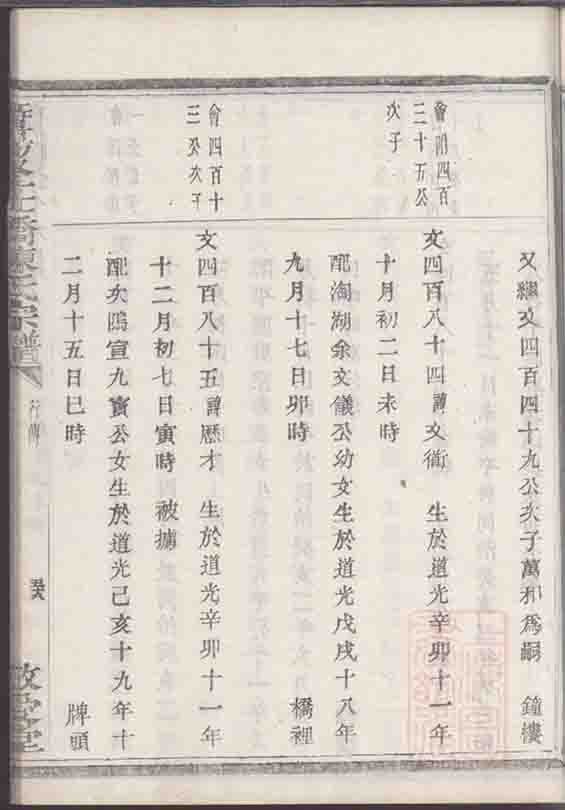 又繼文四百四十九公次子萬和爲嗣 鐘樓
會四百
三十五公
次子
文四百八十四諱文衞 生於道光辛卯十一年
十月初二日未時
配淘湖余文儀公幼女生於道光戊戌十八年
九月十七日卯時 橋裡
會四百十
三公次子
文四百八十五諱歷才 生於道光辛卯十一年
十二月初七日寅時 被擄
配大鴎宣九寳公女生於道光己亥十九年十
二月十五日巳時 牌頭
橋陳氏宗譜
行傳